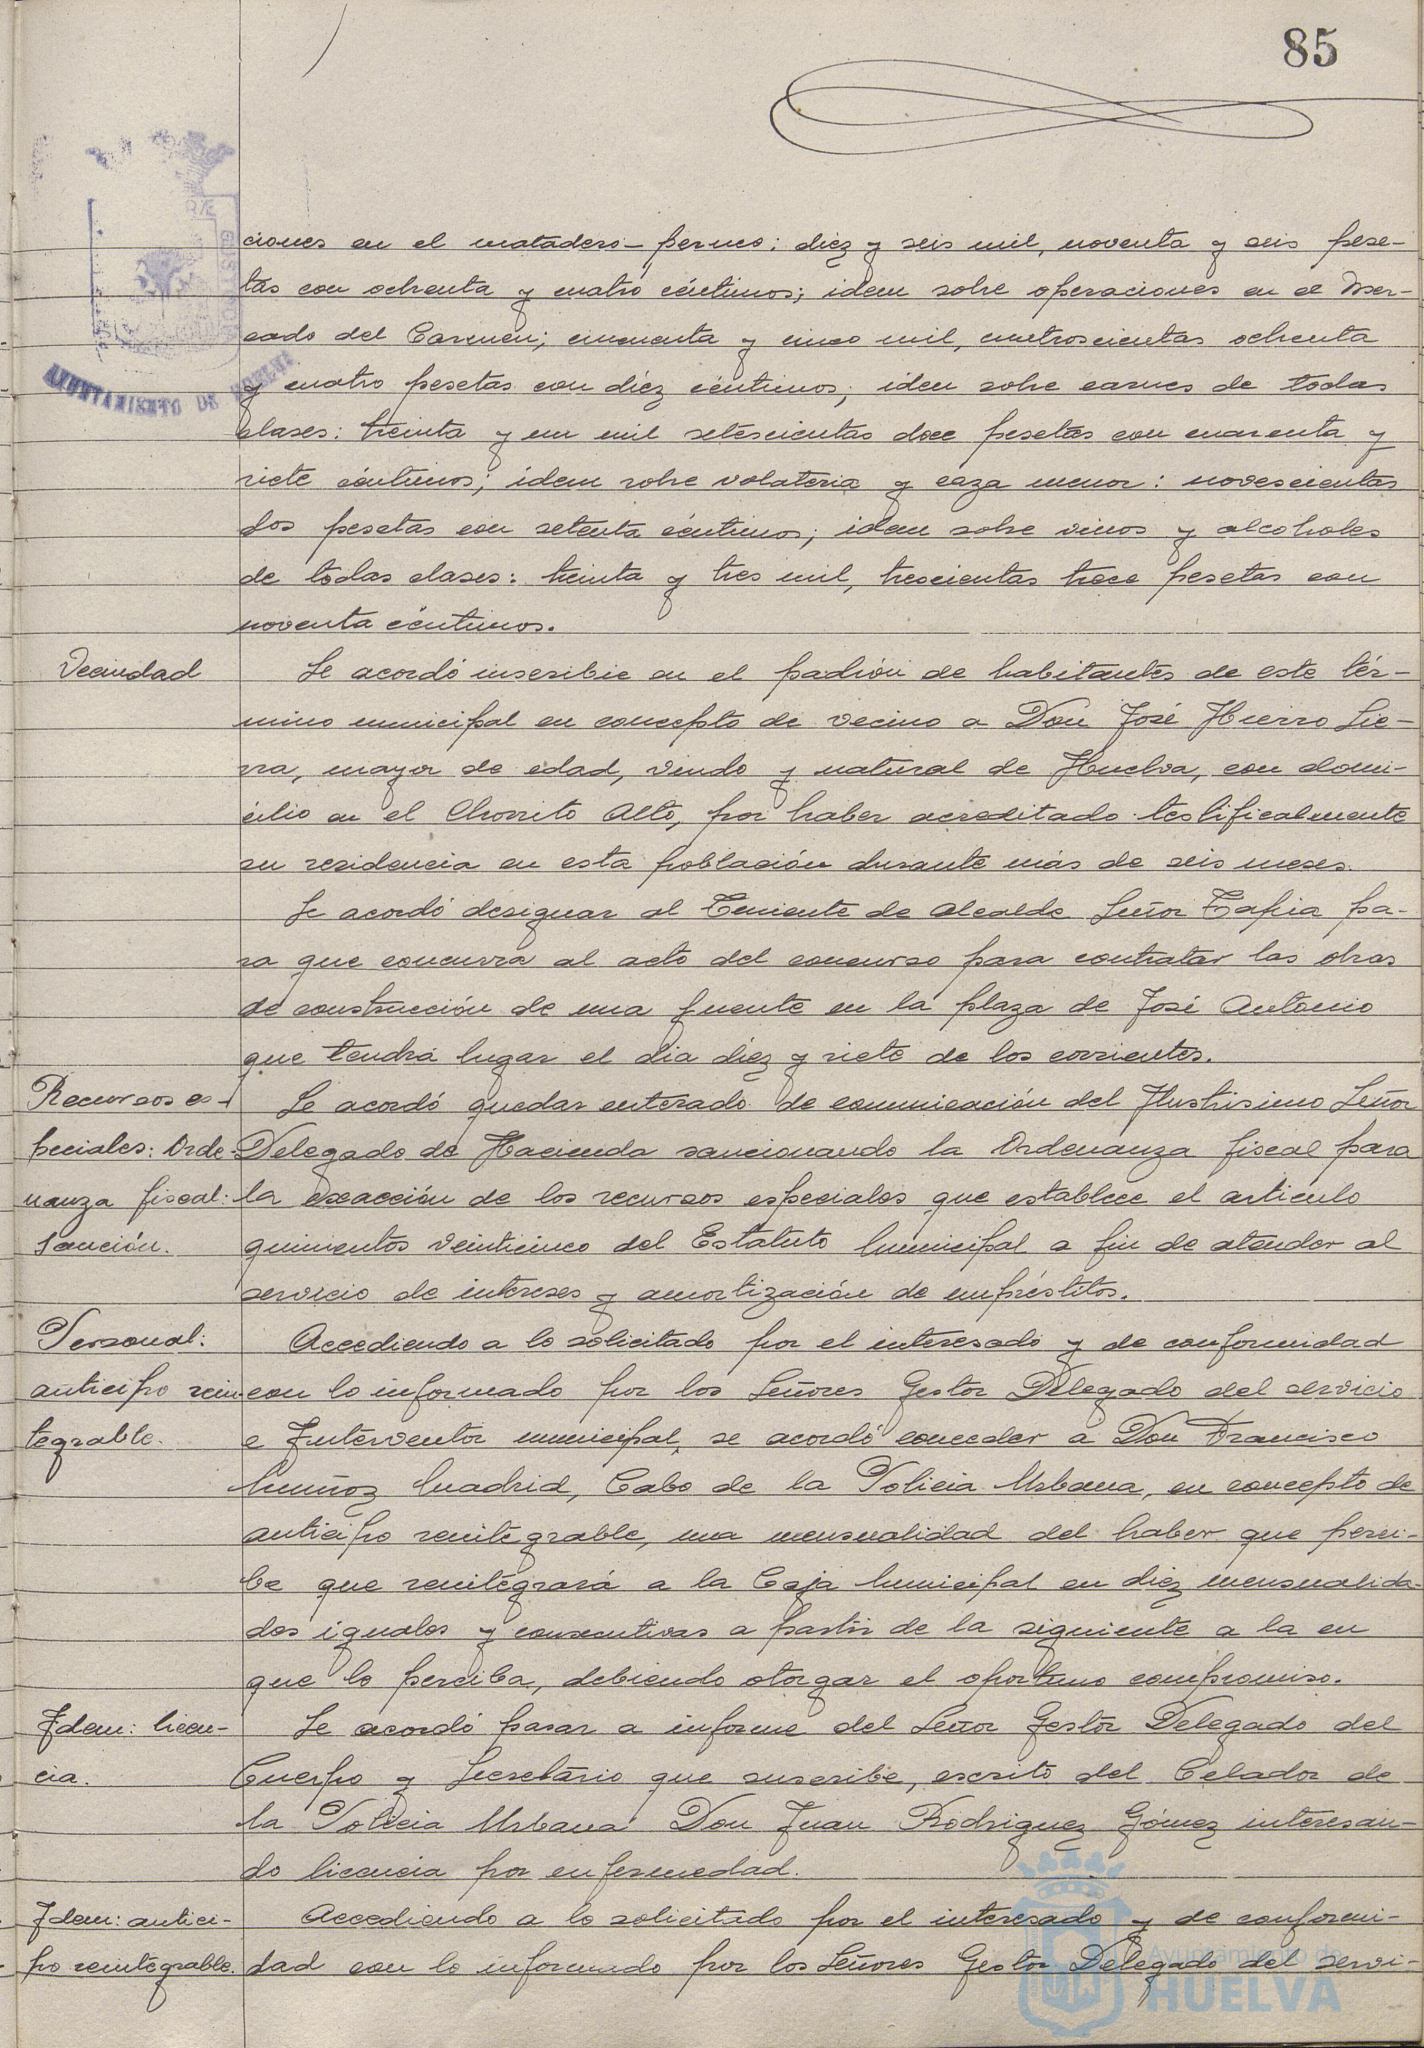 85
ciones en el matadero-permeo; diez y seis mil, noventa y seis pese-
tas con ochenta y cuatro céntimos; idem sobre operaciones en el Mer-
cado del Carmen; cincuenta y cinco mil, cuatroscientas ochenta
y cuatro pesetas con diez céntimos; idem sobre carnes de todas
clases: treinta y un mil setescientas doce pesetas con cuarenta y
siete céntimos; idem sobre volateria y caza menor: novescientas
dos pesetas con setenta céntimos; idem sobre vinos y alcoholes
de todas clases: treinta y tres mil, trescientas trece pesetas con
noventa céntimos.
Vecindad
Se acordó inscribir en el padrón de habitantes de este tér-
mino municipal en concepto de vecino a Don José Hierro Lie-
rra, mayor de edad, viudo y natural de Huelva, con domi-
cilio en el Chorrito Alto, por haber acreditado testificalmente
su residencia en esta población durante más de seis meses.
Se acordó designar al Teniente de Alcalde Señor Tapia pa-
ra que concurra al acto del concurso para contratar las obras
de construcción de una fuente en la plaza de José Antonio
que tendrá lugar el dia diez y siete de los corrientes.
Recursos es-
peciales: Orde-
nanza fiscal:
Sanción.
Se acordó quedar enterado de comunicación del Ilustrisimo Señor
Delegado de Hacienda sancionando la Ordenanza fiscal para
la exacción de los recursos especiales que establece el articulo
quinientos veinticinco del Estatuto Municipal a fin de atender al
servicio de intereses y amortización de empréstitos.
Personal:
anticipo rein-
tegrable.
Accediendo a lo solicitado por el interesado y de conformidad
con lo informado por los Señores Gestor Delegado del servicio
e Interventor municipal, se acordó conceder a Don Francisco
Muñoz Madrid, Cabo de la Policia Urbana, en concepto de
anticipo reintegrable, una mensualidad del haber que perci-
be que reintegrará a la Caja Municipal en diez mensualida-
des iguales y consecutivas a partir de la siguiente a la en
que lo perciba, debiendo otorgar el oportuno compromiso.
Idem: licen-
cia.
Se acordó pasar a informe del Señor Gestor Delegado del
Cuerpo y Secretario que suscribe, escrito del Celador de
la Policia Urbana Don Juan Rodriguez Gómez interesan-
do licencia por enfermedad.
Idem: antici-
po reintegrable.
Accediendo a lo solicitado por el interesado y de conformi-
dad con lo informado por los Señores Gestor Delegado del servi-
AYUNTAMIENTO DE HUELVA
Ayuntamiento de
HUELVA